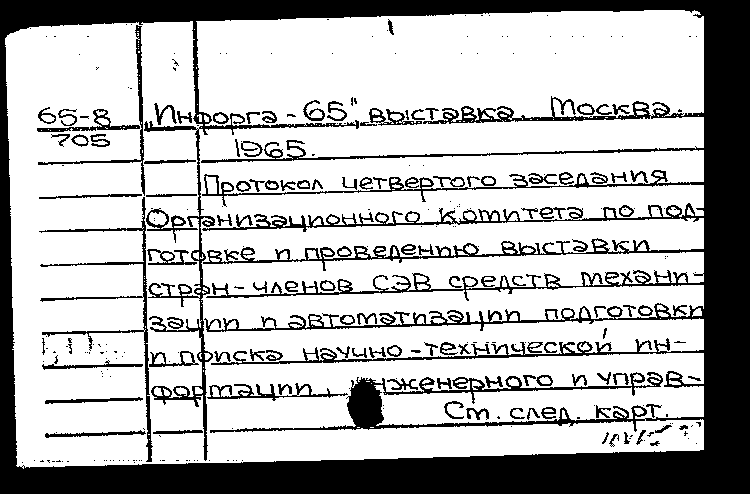 65-8 „Инфорга - 65", выставка. Москва.
705 1965.
Протокол четвертого заседания
Организационного комитета по под-
готовке и проведению выставки
стран-членов СЭВ средств механи-
зации и автоматизации подготовки
и поиска научно-технической ин-
формации, инженерного и управ-
См. след. карт.